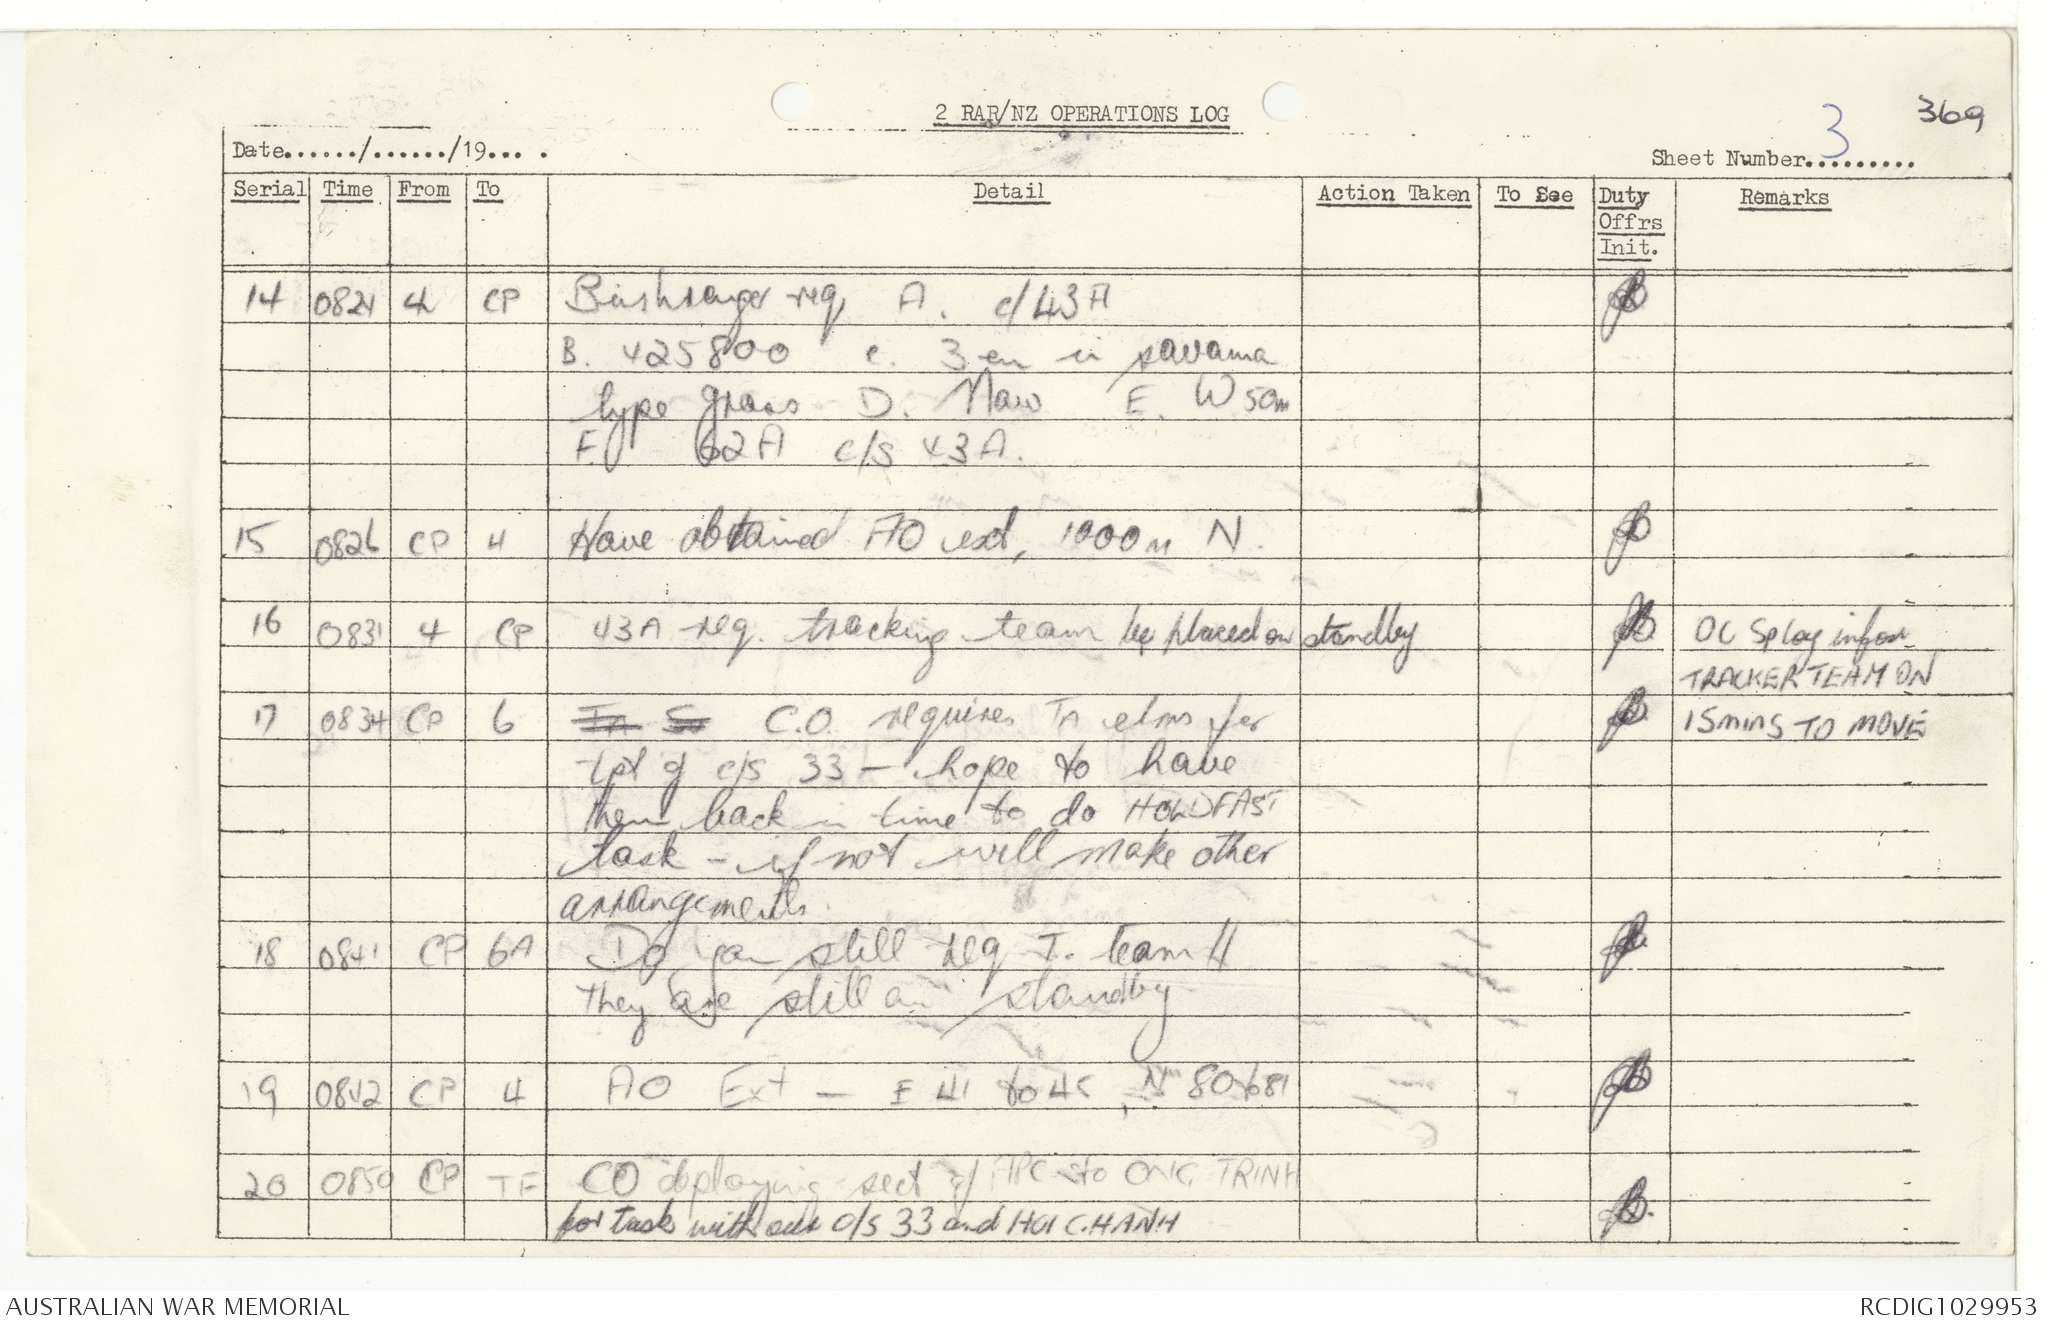 369
2 RAR/NZ OPERATIONS LOG
Date....../....../19... .
Sheet Number 3
Serial Time From To Detail Action Taken To See Duty Offrs Init. Remarks
14 0821 4 CP Bushranger req A. c/43A
B. 425800 c. 3 en in savama
type grass D. Now E. W 50m
F. 62A c/s 43A.
15 0826 CP 4 Have obtained AO ext, 1000m N.
16 0831 4 CP 43A req. tracking team be placed on standby OC Sp Coy infor
TRACKER TEAM ON
17 0834 CP 6 C.O. requires Tn elms for 15 mins TO MOVE
tpt of c/s 33 - hope to have
them back in time to do HOLDFAST
task - if not will make other
arrangements.
18 0841 CP 6A Do you still req T. team
They are still on standby
19 0842 CP 4 AO Ext - E 41 to 45, N 80 to 81
20 0850 CP TF CO deploying sect of APC to ONG TRINH
for task with our c/s 33 and HOI CHANH
AUSTRALIAN WAR MEMORIAL
RCDIG1029953